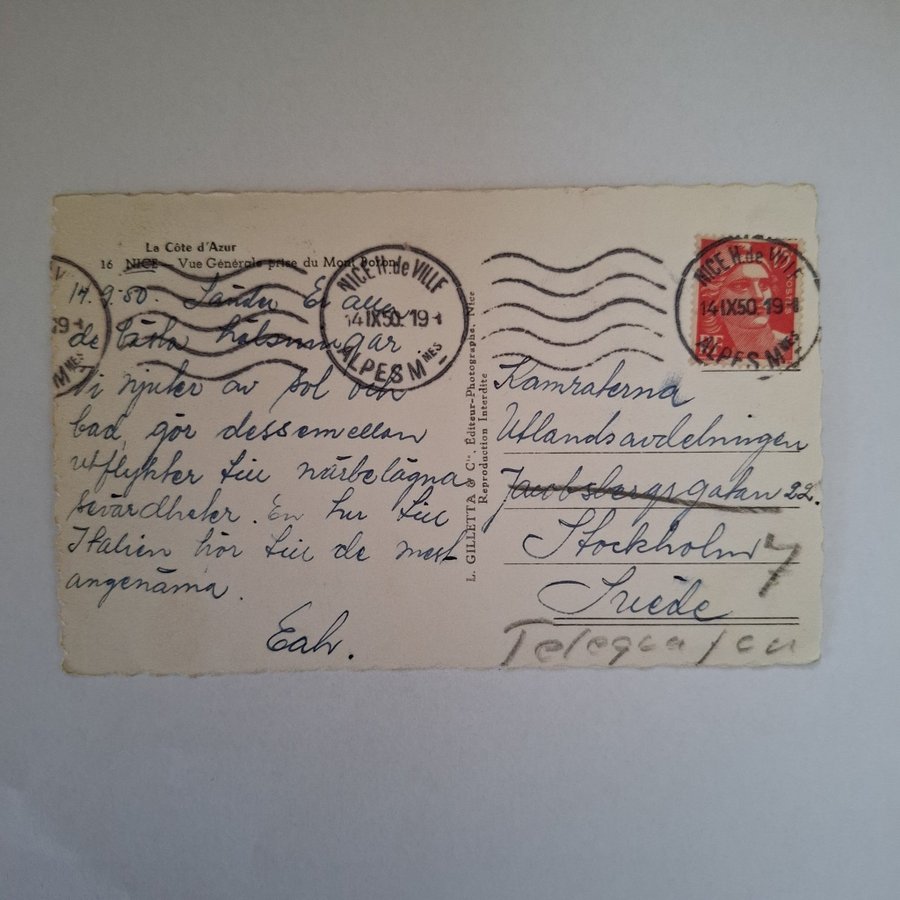 La Côte d'Azur
16 NICE - Vue Générale prise du Mont Boron
14.9.50. Sänder Er alla
de bästa hälsningar
Vi njuter av sol och
bad, gör dessemellan
utflykter till närbelägna
sevärdheter. En tur till
Italien hör till de mest
angenäma.
L. GILLETTA & Cie, Éditeur-Photographe, Nice
Reproduction Interdite
NICE H. de VILLE
14 IX 50 19
ALPES Mmes
NICE H. de VILLE
14 IX 50 19
ALPES Mmes
Kamraterna
Utlandsavdelningen
Jacobsbergsgatan 22.
Stockholm 7
Suède